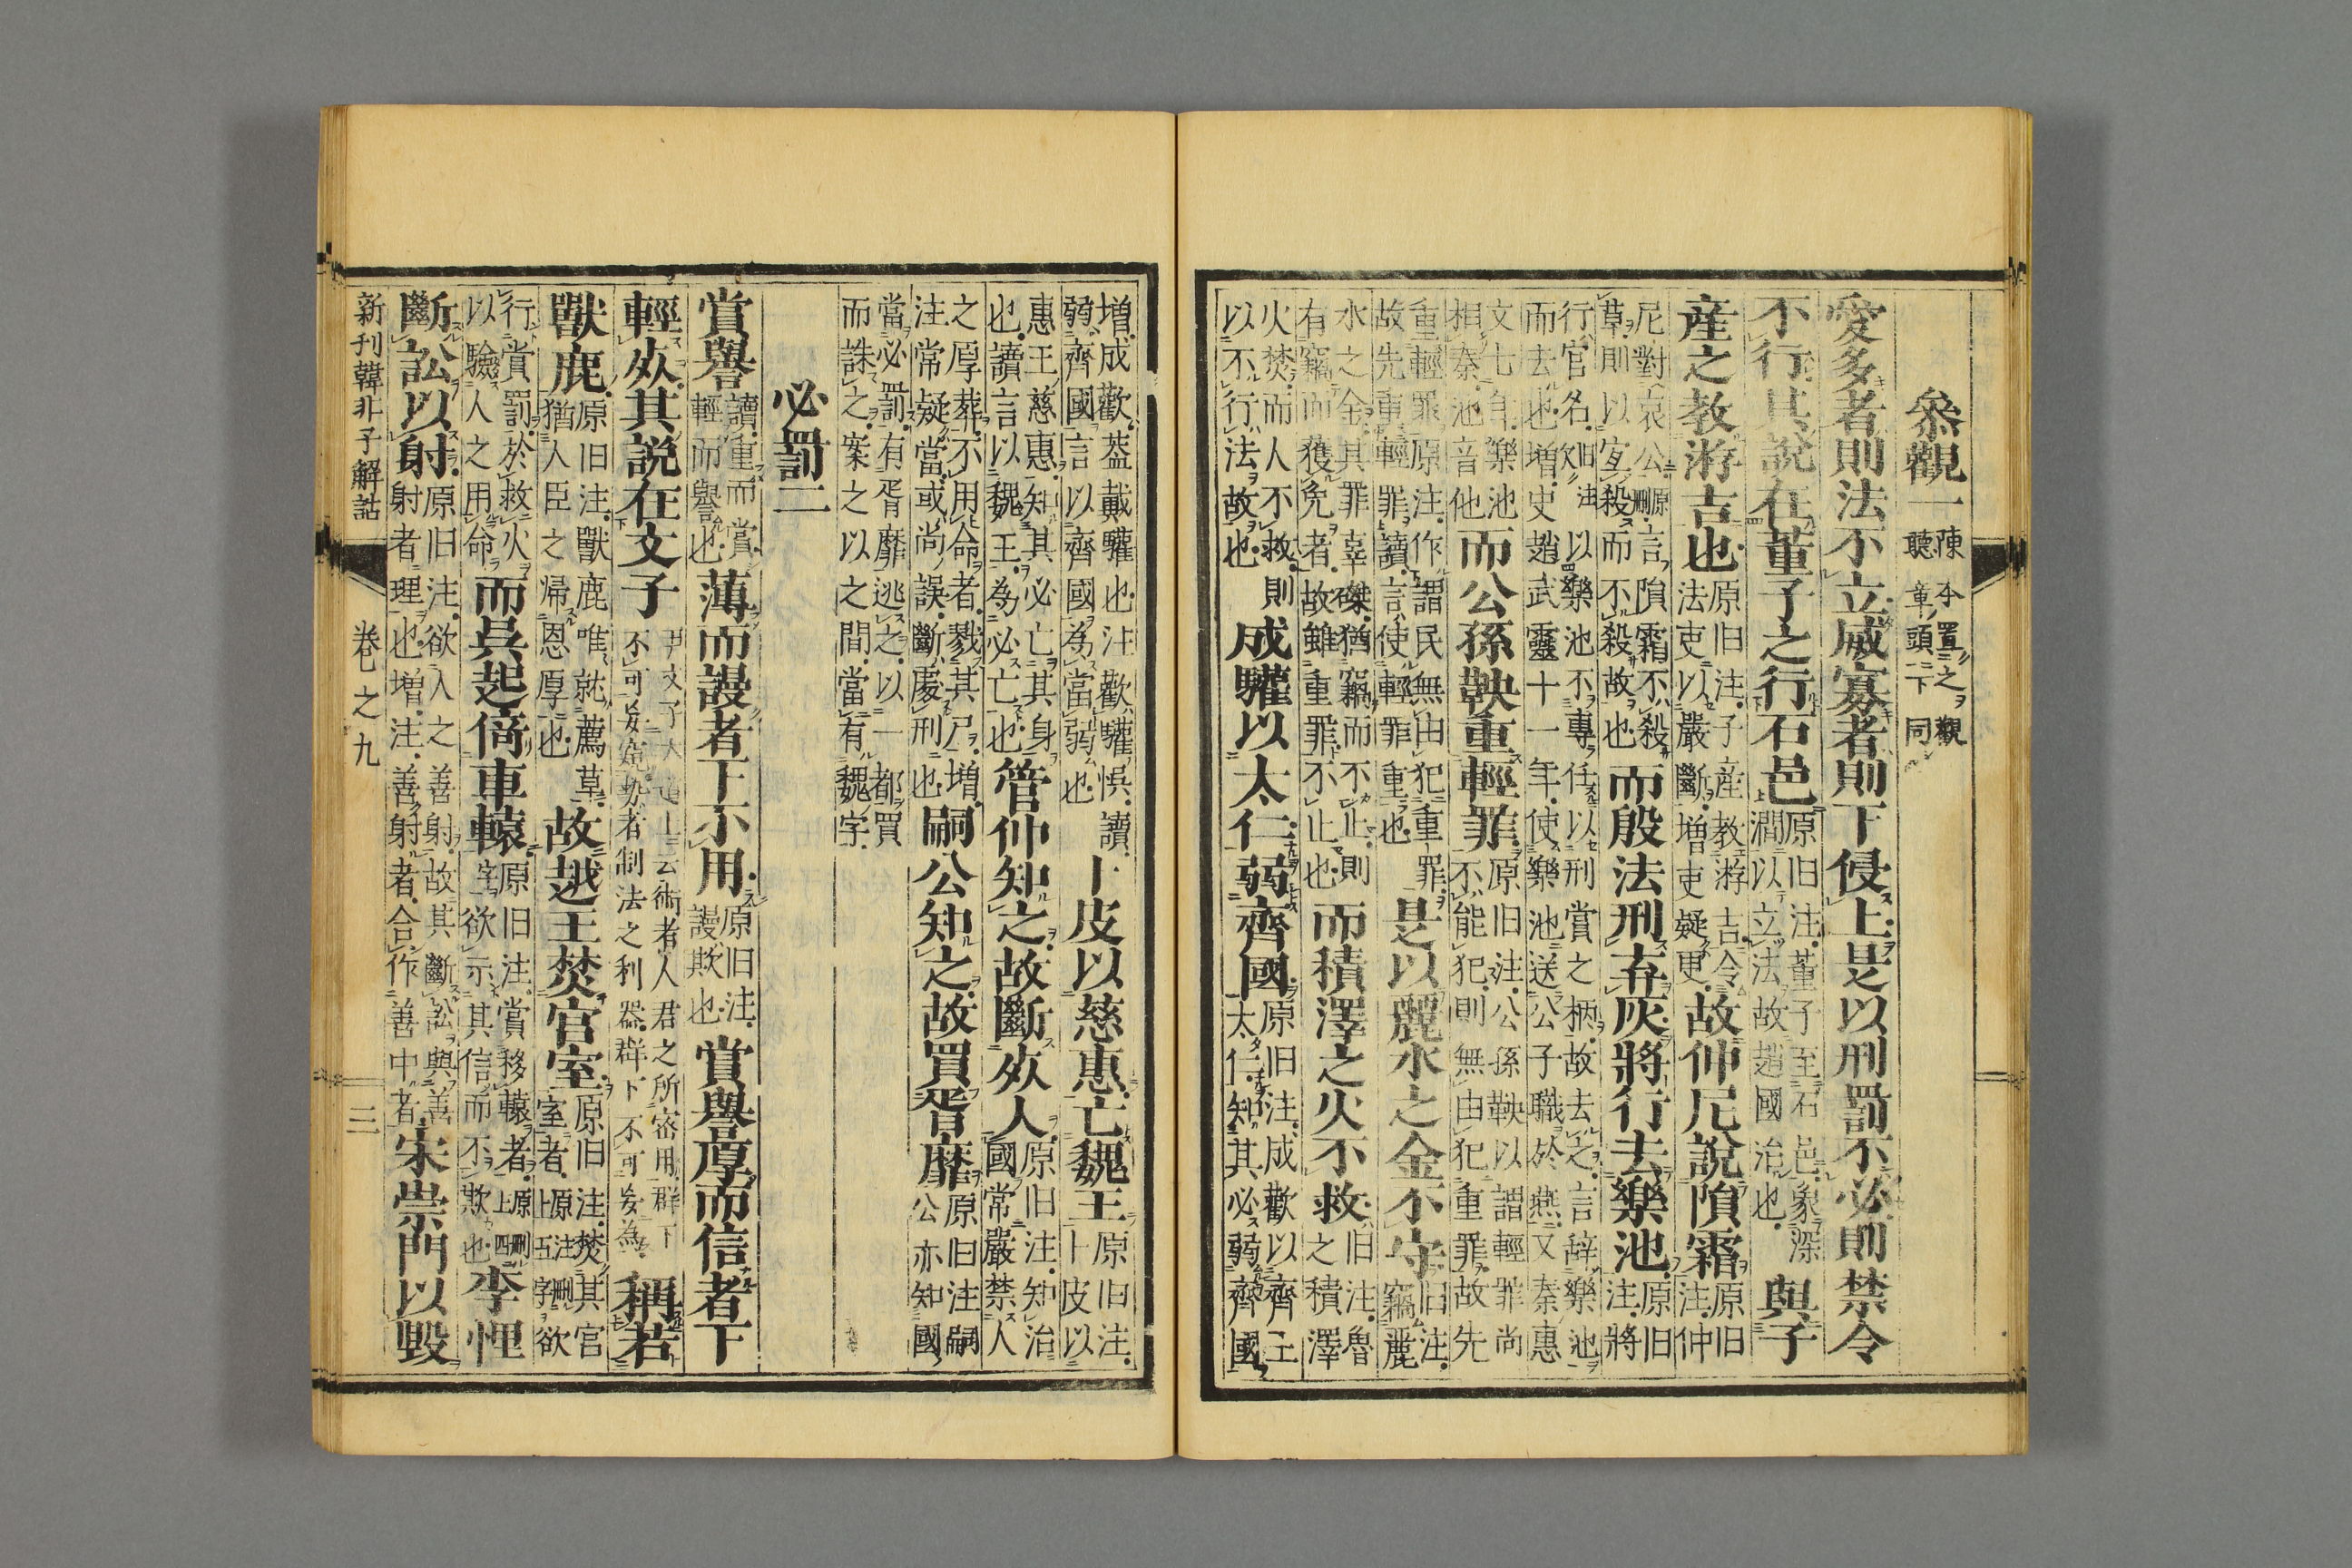 參觀一陳本置之觀聽章頭下同
愛多者則法不立威寡者則下侵上是以刑罰不必則禁令
不行其說在董子之行石邑原旧注董子至石邑象深澗以立法故趙國治也與子
産之教游吉也原旧注子産教游吉令法吏以嚴斷増吏疑更故仲尼說隕霜原旧注仲
尼對哀公原删言隕霜不殺草則以寔殺而不殺故也而殷法刑弃灰將行去樂池原旧注將
行官名旧注欠以樂池不專任以刑賞之柄故去之言辞樂池而去也増史趙武靈十一年使樂池送公子職於燕又秦惠
文七年樂池相秦池音他而公孫鞅重輕罪原旧注公孫鞅以謂輕罪尚不能犯則無由犯重罪故先
重輕罪原注作謂民無由犯重罪故先重輕罪讀言使輕罪重也是以麗水之金不守旧注竊麗
水之金其罪辜磔猶竊而不止則有竊而獲免者故雖重罪不止也而積澤之火不救旧注魯之積澤
火焚而人不救則以不行法故也成驩以太仁弱齊國原旧注成歡以齊王太仁知其必弱齊國
増成歡葢戴驩也注歡驩悞讀弱齊國言以齊國為當弱也卜皮以慈惠亡魏王原旧注卜皮以
惠王慈惠知其必亡其身也讀言以魏王為必亡也管仲知之故斷㱙人原旧注知治國常嚴禁人
之厚葬不用命者戮其尸増注常疑當或尚誤斷慶刑也嗣公知之故買胥靡原旧注嗣公亦知國
當必罰有胥靡逃之以一都買而誅之案之以之間當有魏字
必罰二
賞譽讀重而賞輕而譽也薄而謾者下不用原旧注謾欺也賞譽厚而信者下
輕㱙其說在文子尹文子大道上云術者人君之所密用群下不可妄窺勢者制法之利器群下不可妄為稱若
獸鹿原旧注獸鹿唯就薦草猶人臣之帰恩厚也故越王焚官室原旧注焚其官室者原注删上五字欲
行賞罰於救火以驗人之用命而呉起倚車轅原旧注賞移轅者原删上四字欲示其信而不欺也李悝
斷訟以射原旧注欲人之善射故其斷訟與善射者理也増注善射者合作善中者宋崇門以毀
新刊韓非子解詁 卷之九 三